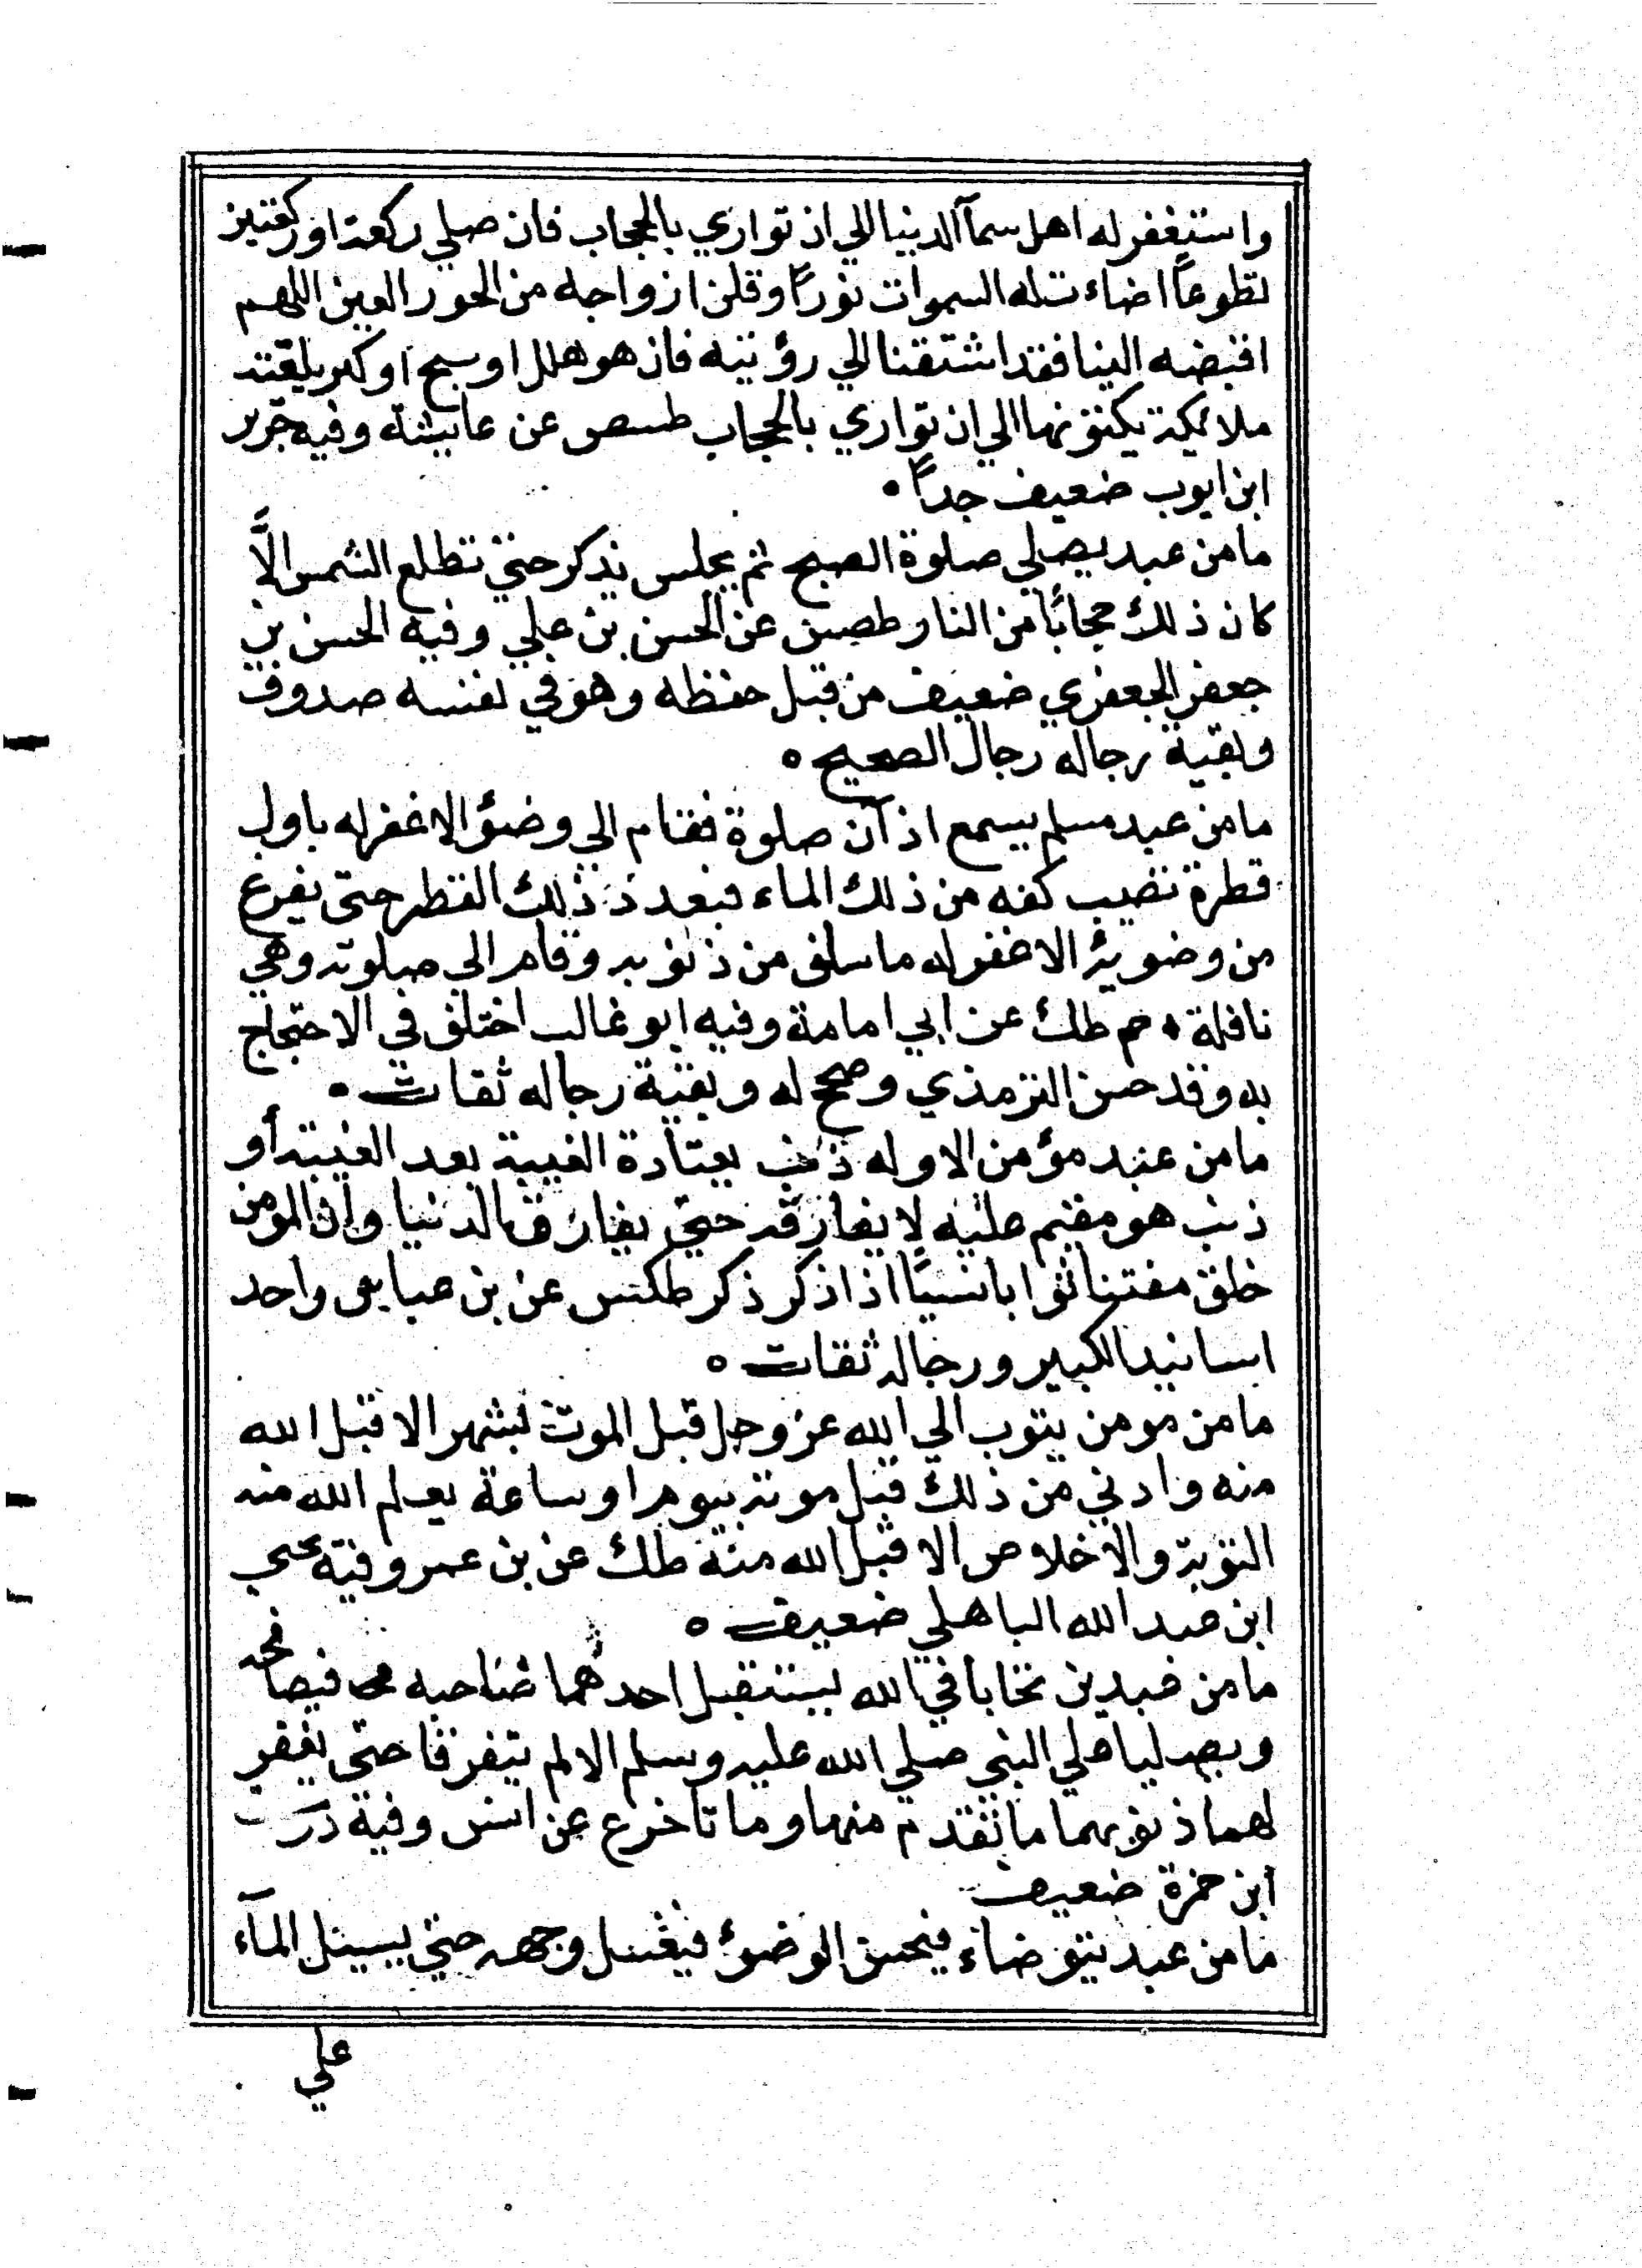 واستغفر له اهل سمآ الدنيا الي ان تواري بالحجاب فان صلي ركعة او ركعتين
تطوعاً اضاءت له السموات نوراً وقلن ازواجه من الحور العين اللهم
اقبضه الينا فقد اشتقنا الي رؤيته فان هو هلل او سبح او كبر يلقته
ملائكة يكتبونها الي ان تواري بالحجاب طسص عن عايشة وفيه جرير
ابن ايوب ضعيف جداً
ما من عبد يصلي صلوة الصبح ثم يجلس يذكر حتي تطلع الشمس الَّا
كان ذلك حجاباً من النار طصن عن الحسن بن علي وفيه الحسن بن
جعفر الجعفري ضعيف من قبل حفظه وهو في نفسه صدوق
وبقية رجاله رجال الصحيح ه
ما من عبد مسلم يسمع اذآن صلوة فقام الي وضؤ الا غفر له باول
قطرة تصيب كفه من ذلك الماء فبعدد ذلك القطر حتى يفرع
من وضويه الا غفر له ما سلف من ذنوبه وقام الي صلوته وهي
نافلة ه حم طك عن ابي امامة وفيه ابو غالب اختلف في الاحتجاج
به وقد حسن الترمذي وصحح له وبقية رجاله ثقات
ما من عبد مؤمن الا وله ذنب يعتادة الفيبة بعد الفيبة أو
ذنب هو مقيم عليه لا يفارقه حتى يفارق الدنيا وان المومن
خلق مفتنا توابا نسيًا اذا ذكر ذكر طكس عن بن عباس واحد
اسانيد الكبير ورجاله ثقات ه
ما من مومن يتوب الي الله عز وجل قبل الموت بشهر الا قبل الله
منه وادني من ذلك قبل موته بيوم او ساعة يعلم الله منه
التوبة والاخلاص الا قبل الله منه طك عن بن عمر وفيه يحيي
ابن عبد الله الباهلي ضعيف ه
ما من عبدين تحابا في الله يستقبل احدهما صاحبه فيصافحه
ويصليا علي النبي صلي الله عليه وسلم الا لم يتفرقا حتى يغفر
لهما ذنوبهما ما تقدم منها وما تاخر ع عن انس وفيه درست
ابن حمزة ضعيف
ما من عبد يتوضاء فيحسن الوضؤ فيغسل وجهه حتي يسيل المآء
علي